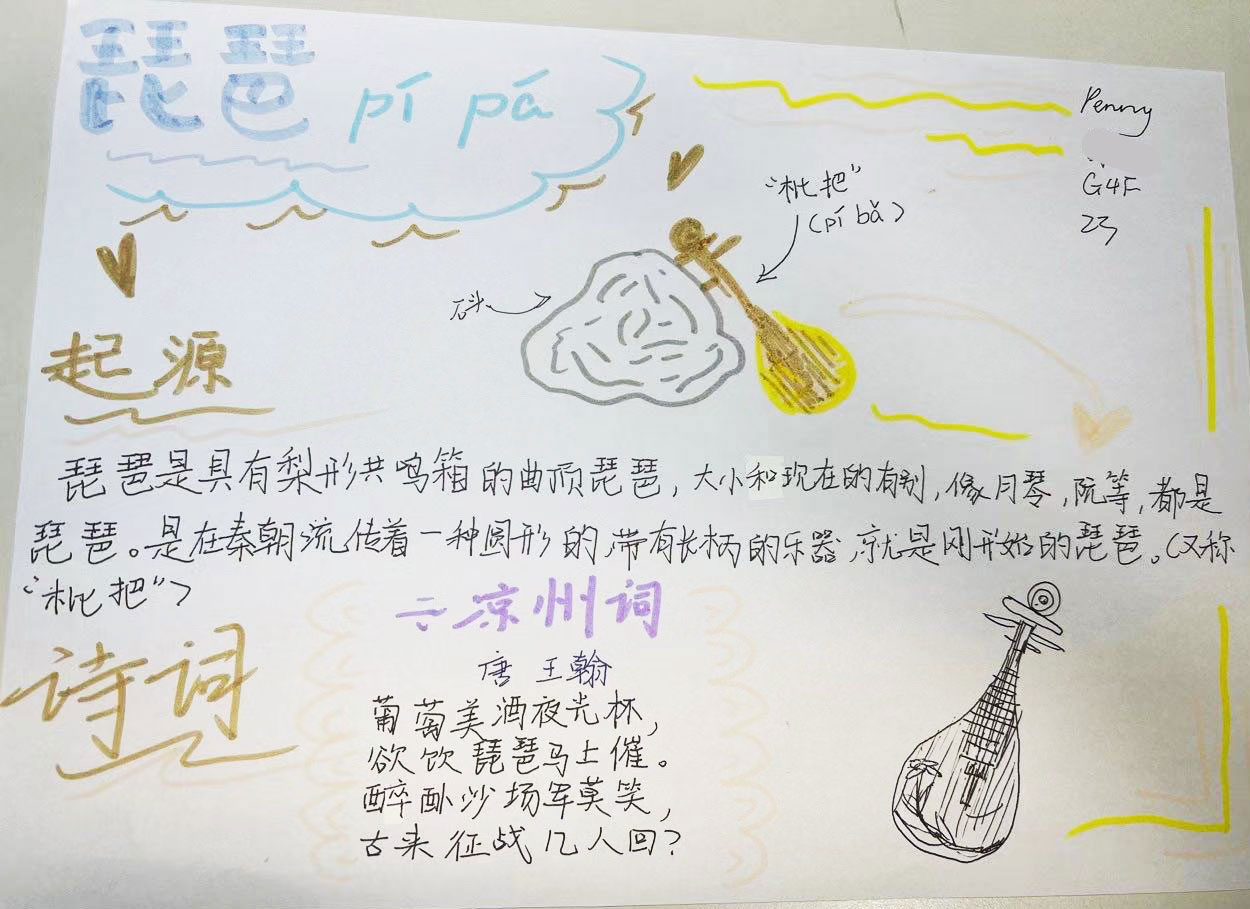 琵琶 pí pá
Penny
G4F
23
"枇把"
(pí bǎ)
起源
琵琶是具有梨形共鸣箱的曲项琵琶，大小和现在的有别，像月琴，阮等，都是
琵琶。是在秦朝流传着一种圆形的，带有长柄的乐器，就是刚开始的琵琶。（又称
"枇把"）
诗词
凉州词
唐 王翰
葡萄美酒夜光杯，
欲饮琵琶马上催。
醉卧沙场军莫笑，
古来征战几人回？